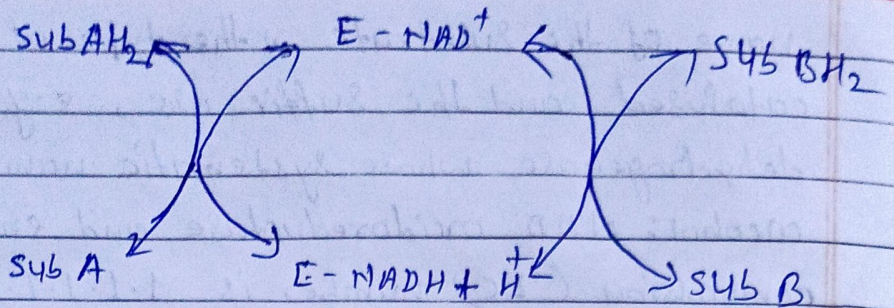 SubAH₂ E - NAD⁺ Sub BH₂
Sub A E - NADH + H⁺ Sub B